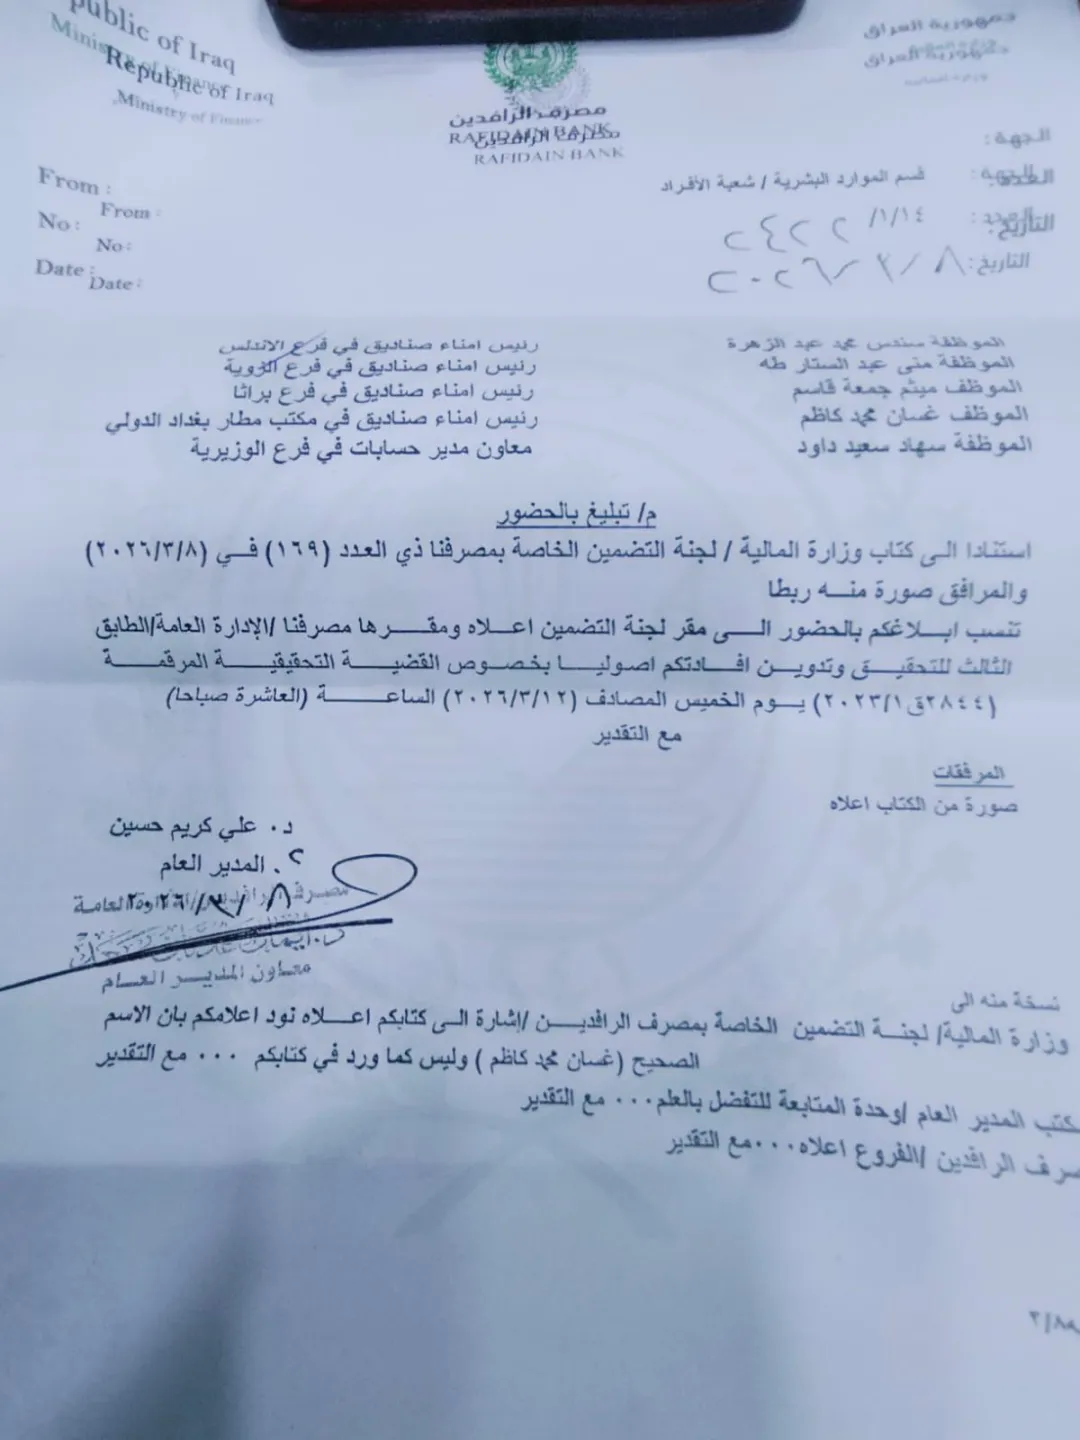 public of Iraq
Ministry of Finance
Republic of Iraq
Ministry of Finance
جمهورية العراق
جمهورية العراق
مصرف الرافدين
RAFIDAIN BANK
مصرف الرافدين
RAFIDAIN BANK
From :
From :
No :
No :
Date :
Date :
الجهة :
العدد :
التاريخ :
الجهة : قسم الموارد البشرية / شعبة الأفراد
العدد : ١/١٤/ ٢٢٤٢٢
التاريخ: ٨ / ٣ / ٢٠٢٦
الموظفة سندس محمد عبد الزهرة رئيس امناء صناديق في فرع الاندلس
الموظفة منى عبد الستار طه رئيس امناء صناديق في فرع الزوية
الموظف ميثم جمعة قاسم رئيس امناء صناديق في فرع براثا
الموظف غسان محمد كاظم رئيس امناء صناديق في مكتب مطار بغداد الدولي
الموظفة سهاد سعيد داود معاون مدير حسابات في فرع الوزيرية
م/ تبليغ بالحضور
استنادا الى كتاب وزارة المالية / لجنة التضمين الخاصة بمصرفنا ذي العدد (١٦٩) في (٢٠٢٦/٣/٨)
والمرافق صورة منه ربطا
تنسب ابلاغكم بالحضور الى مقر لجنة التضمين اعلاه ومقرها مصرفنا /الإدارة العامة/الطابق
الثالث للتحقيق وتدوين افادتكم اصوليا بخصوص القضية التحقيقية المرقمة
(٢٨٤٤ق٢٠٢٣/١) يوم الخميس المصادف (٢٠٢٦/٣/١٢) الساعة (العاشرة صباحا)
مع التقدير
المرفقات
صورة من الكتاب اعلاه
د. علي كريم حسين
المدير العام
٨ / ٣ / ٢٠٢٦
معاون المدير العام
نسخة منه الى
وزارة المالية/ لجنة التضمين الخاصة بمصرف الرافدين /إشارة الى كتابكم اعلاه نود اعلامكم بان الاسم
الصحيح (غسان محمد كاظم ) وليس كما ورد في كتابكم ... مع التقدير
كتب المدير العام /وحدة المتابعة للتفضل بالعلم... مع التقدير
صرف الرافدين /الفروع اعلاه....مع التقدير